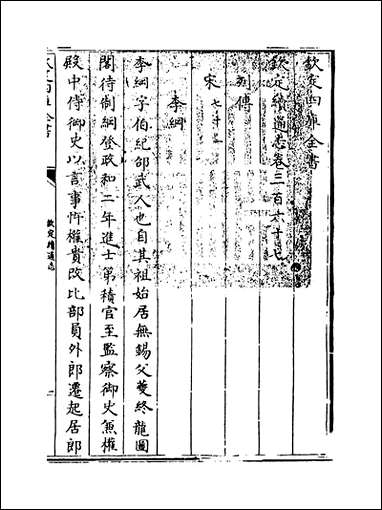 欽定四庫全書
欽定續通志卷三百六十七
列傳
宋
李綱
李綱字伯紀邵武人也自其祖始居無錫父夔終龍圖
閣待制綱登政和二年進士第積官至監察御史兼權
殿中侍御史以言事忤權貴改比部員外郎遷起居郎
欽定續通志